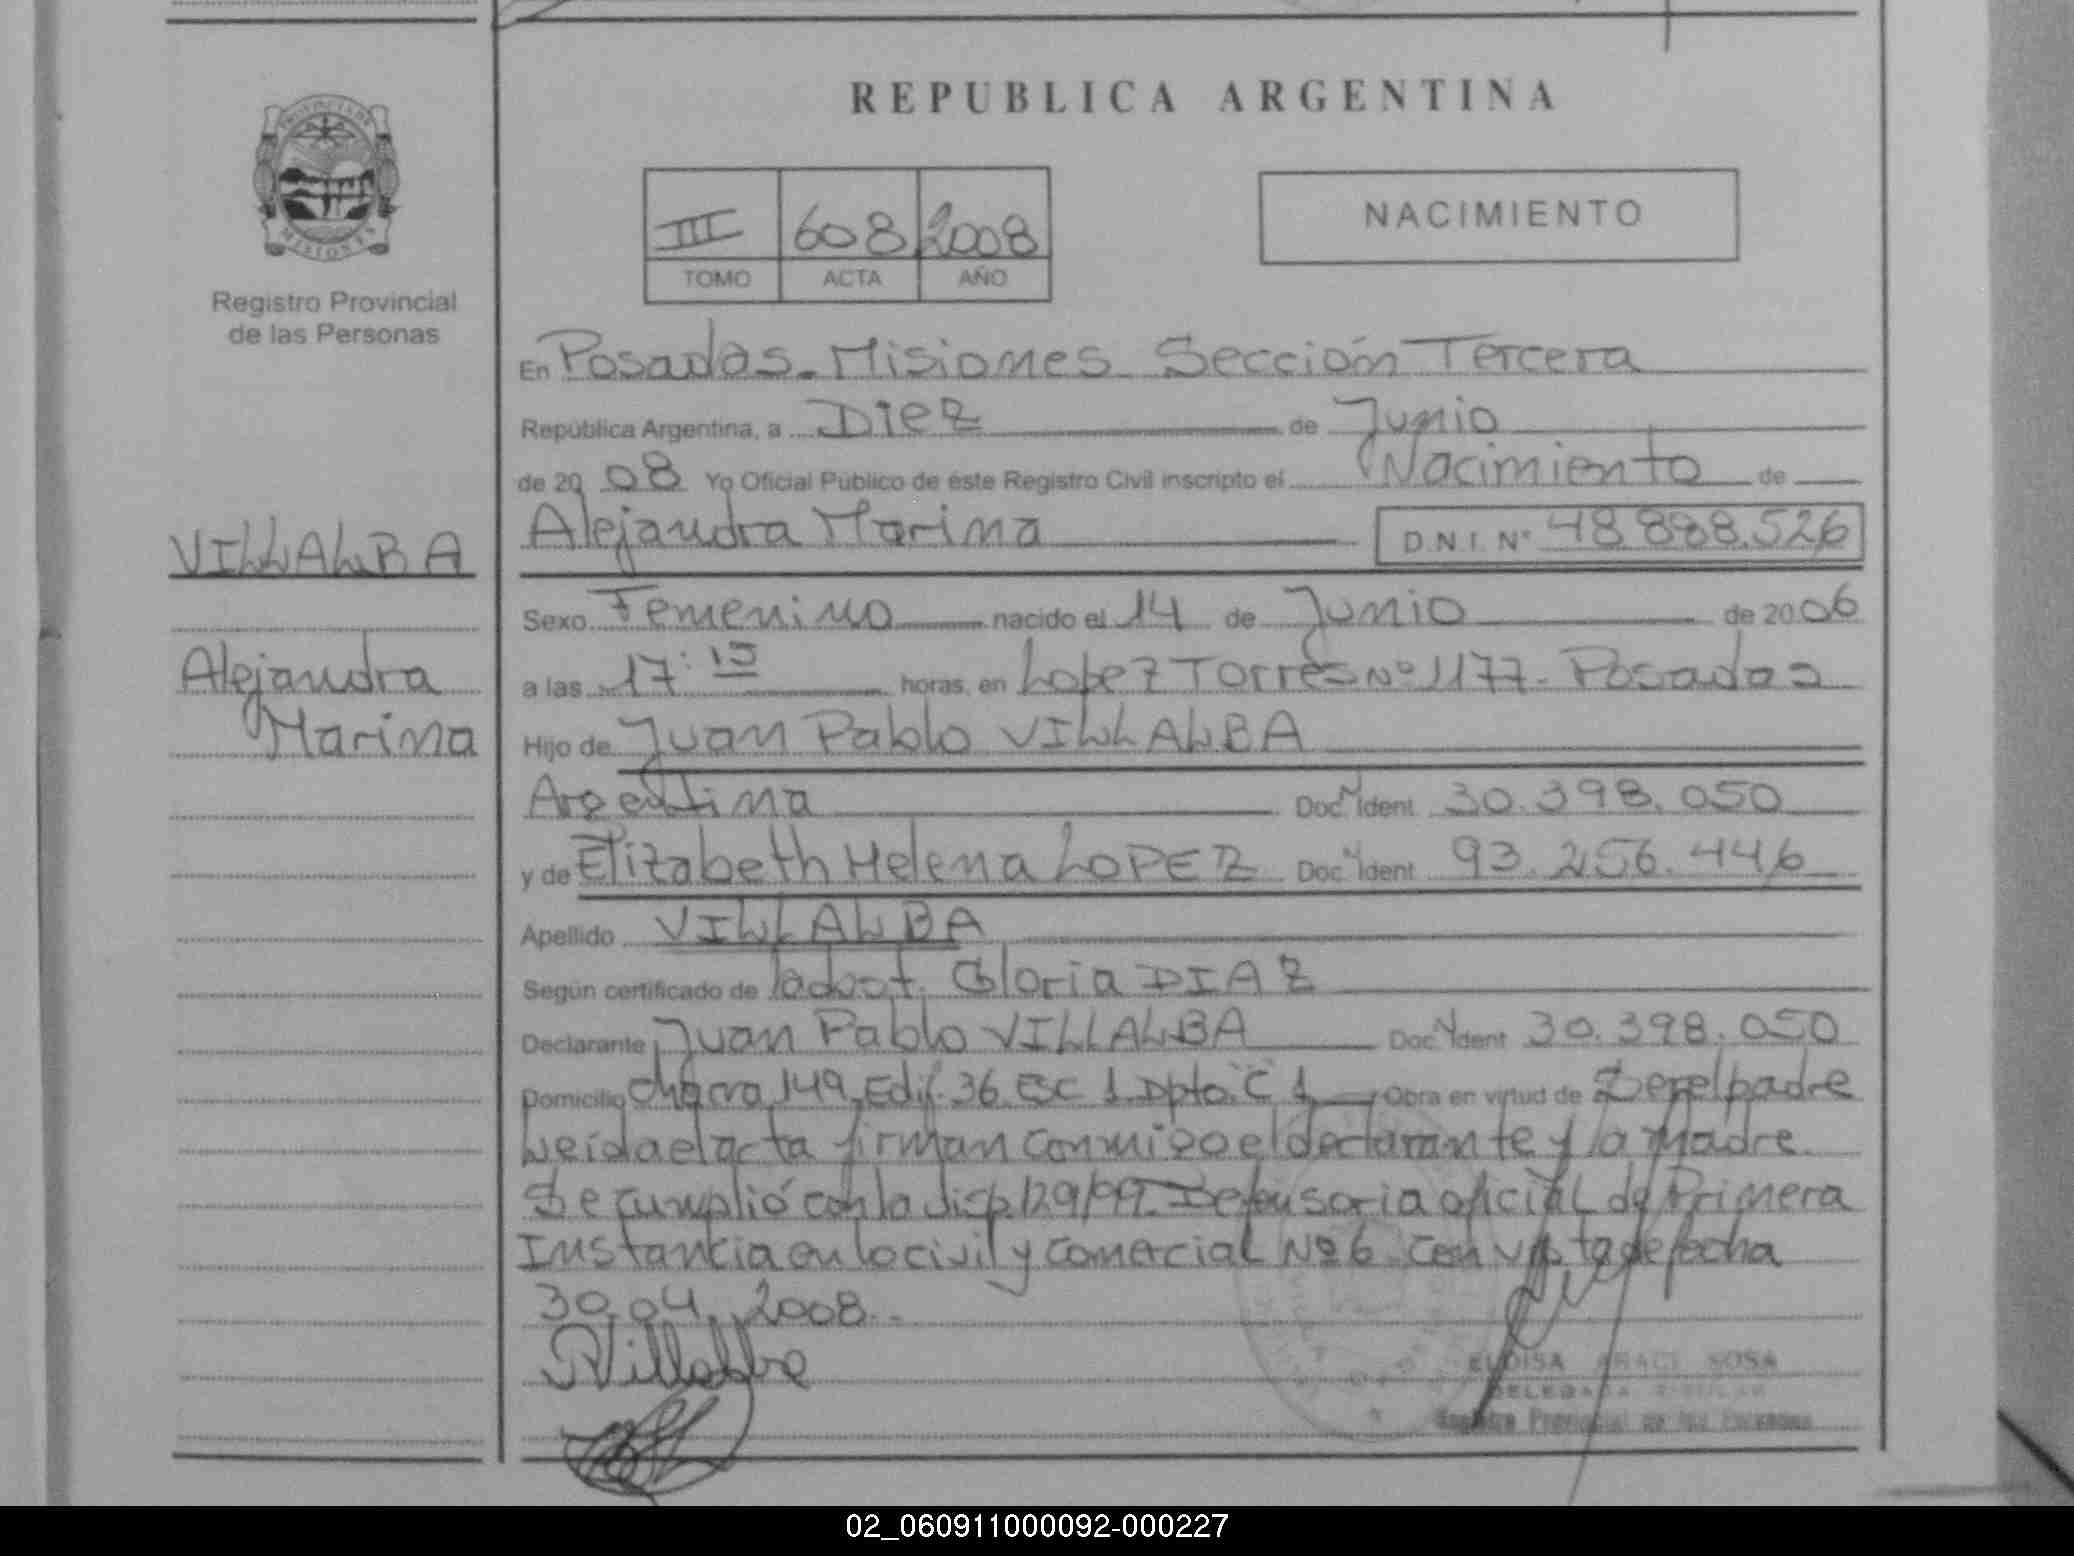 REPUBLICA ARGENTINA
PROVINCIA DE
MISIONES
Registro Provincial
de las Personas
III 608 2008
TOMO ACTA AÑO
NACIMIENTO
En Posadas - Misiones Sección Tercera
República Argentina, a Diez de Junio
de 2008 Yo Oficial Público de éste Registro Civil inscripto el Nacimiento de
VILLALBA
Alejandra Marina
Alejandra Marina D.N.I. Nº 48.888.526
Sexo Femenino nacido el 14 de Junio de 2006
a las 17:15 horas, en Lopez Torres Nº 1177 - Posadas
Hijo de Juan Pablo VILLALBA
Argentina Doc. Ident. 30.398.050
y de Elizabeth Helena LOPEZ Doc. Ident. 93.256.446
Apellido VILLALBA
Según certificado de Gloria DIAZ
Declarante Juan Pablo VILLALBA Doc. Ident. 30.398.050
Domicilio Chacra 149, Edif. 36 ESC 1 Dpto. C 1 Obra en virtud de Ser el padre
Leida el acta firman conmigo el declarante y la madre.
Se cumplió con la disp. 129/99. Defensoria oficial de Primera
Instancia en lo civil y comercial Nº 6 con vista de fecha
30.04.2008.-
Villalba
ELOISA ARACI SOSA
DELEGADA TITULAR
Registro Provincial de las Personas
02_060911000092-000227